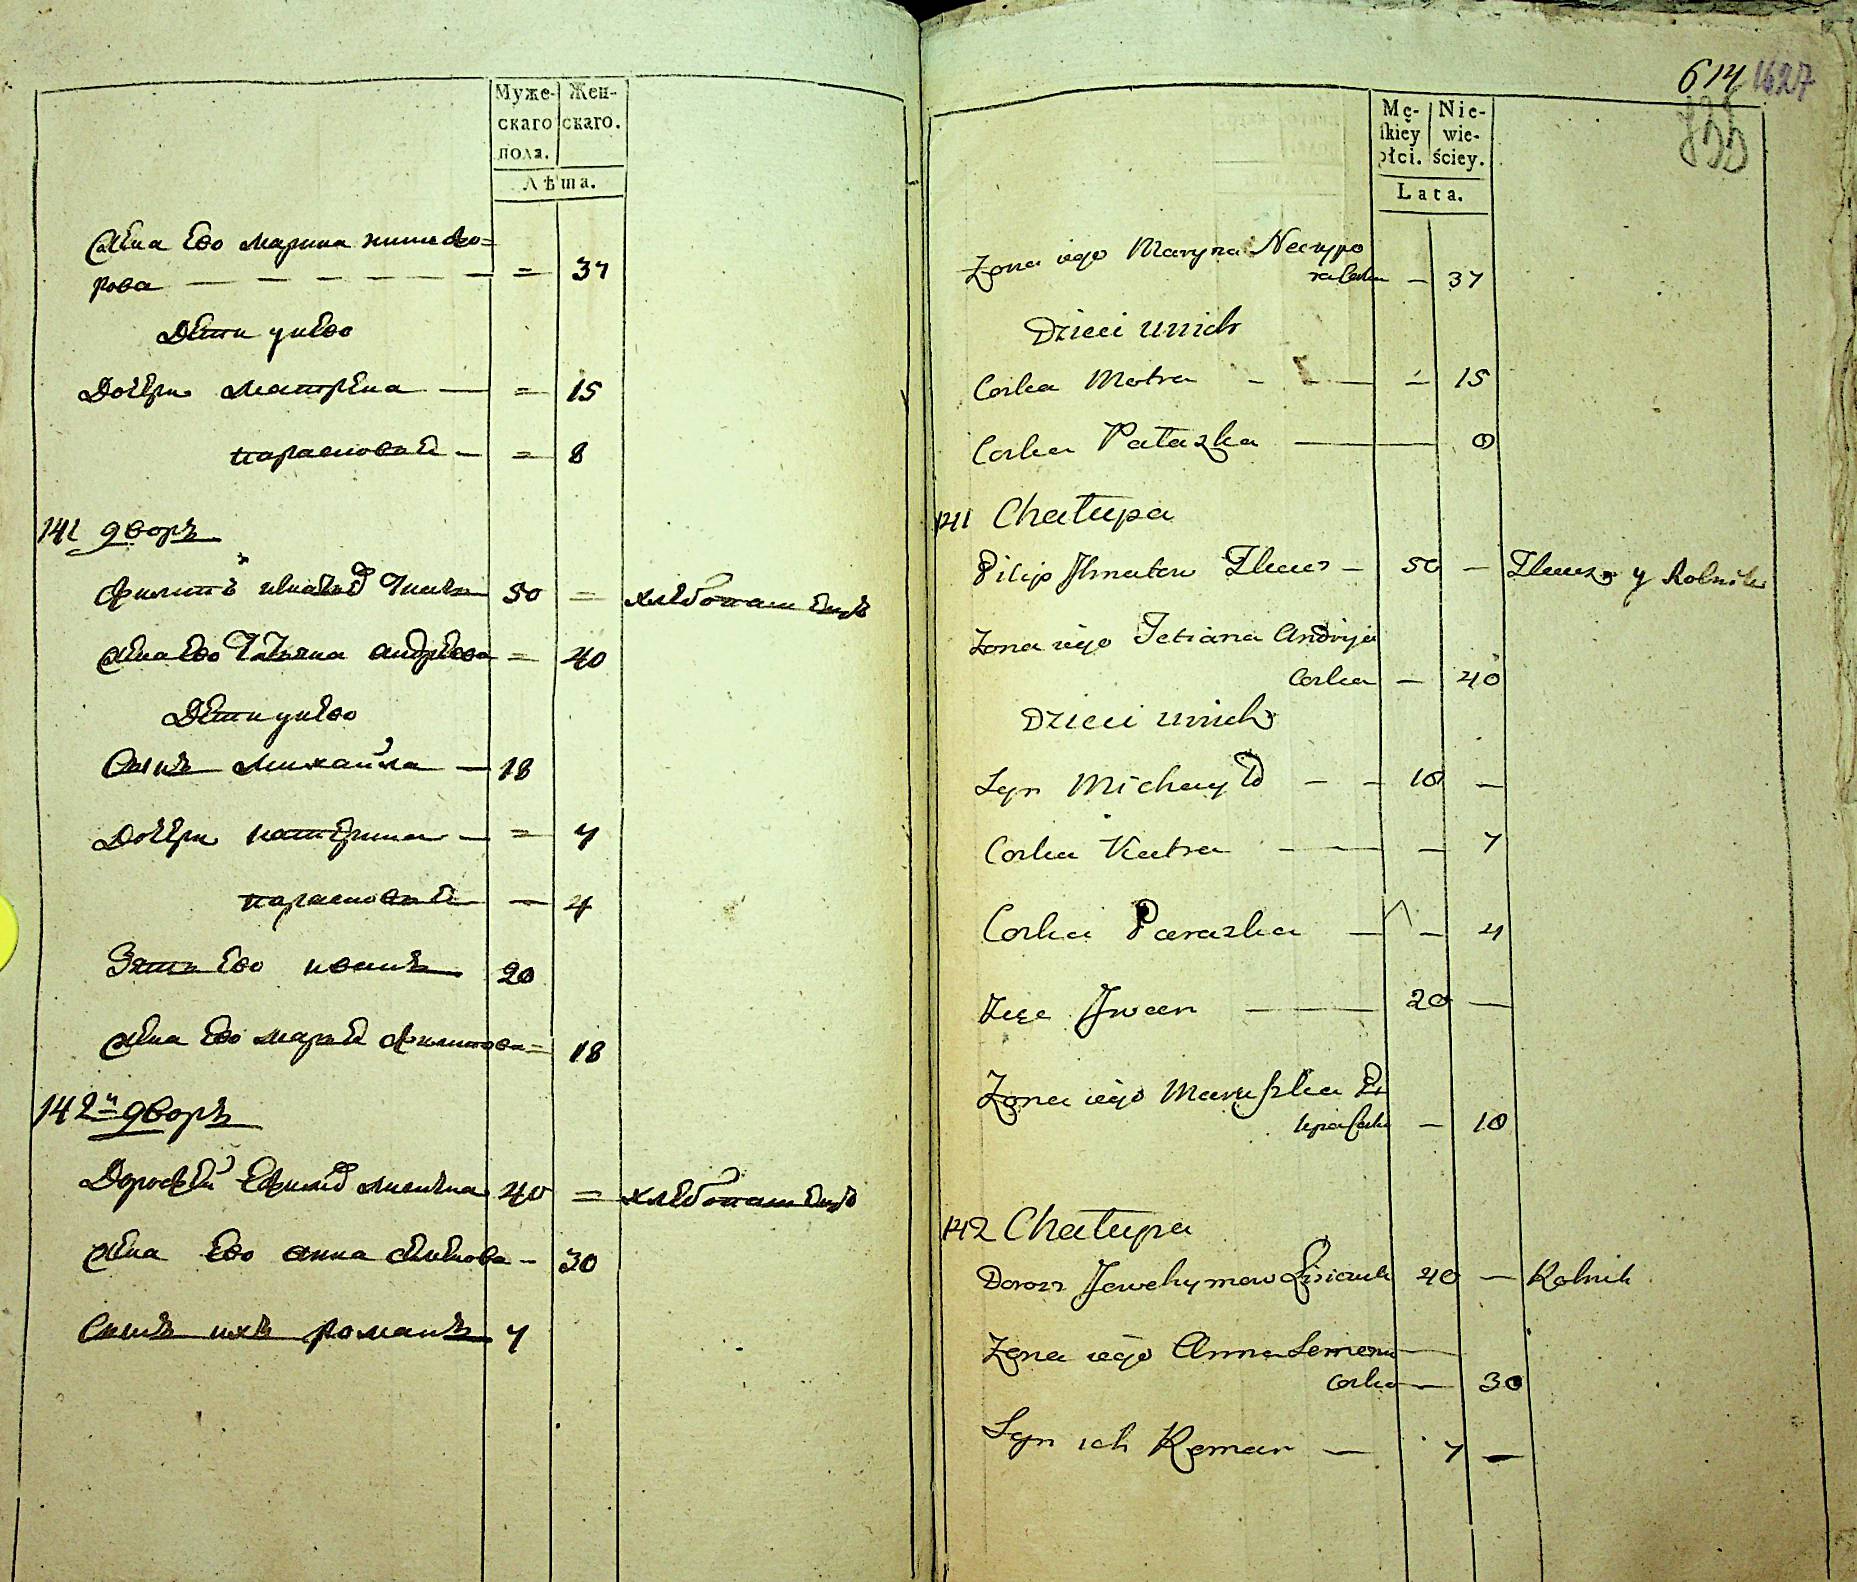 Муже-
скаго
пола.
Жен-
скаго.
Лѣта.
Жена Ево марина ничифо=
рова — = 37
Дети унево
Дочери матрена — = 15
парасковия — = 8
141 дворъ
Филипъ игнатов Ткачъ 50 = хлебопашецъ
Жена Ево Татьяна андреева = 40
Дети унево
Сынъ михайла — 18
Дочери катерина — = 7
парасковия — 4
Зять Ево иванъ 20
Жена Ево мария филипова = 18
142й дворъ
Дорофей Ефимов 40 = хлебопашецъ
Жена Ево анна семенова - 30
Сынъ ихъ романъ 7
614 1627
Mę-
skiey
płci.
Nie-
wie-
ściey.
Lata.
Zona iego Maryna Neczypo
ra Corka — 37
Dzieci unich
Corka Motra - — 15
Corka Paraszka — 8
141 Chałupa
Pilip Jhnatow Tkacz — 50 — Tkacz y Rolnik
Zona iego Tetiana Andryja
Corka — 40
Dzieci unich
Syn Michayło - - 18 —
Corka Katra — — 7
Corka Paraszka — — 4
Zięć Jwan — 20 —
Zona iego Maruszka Pi
lipa Cork — 18
142 Chałupa
Dorosz Jewchymow 40 — Rolnik
Zona iego Anna Semena —
Corka — 30
Syn ich Roman — 7 —